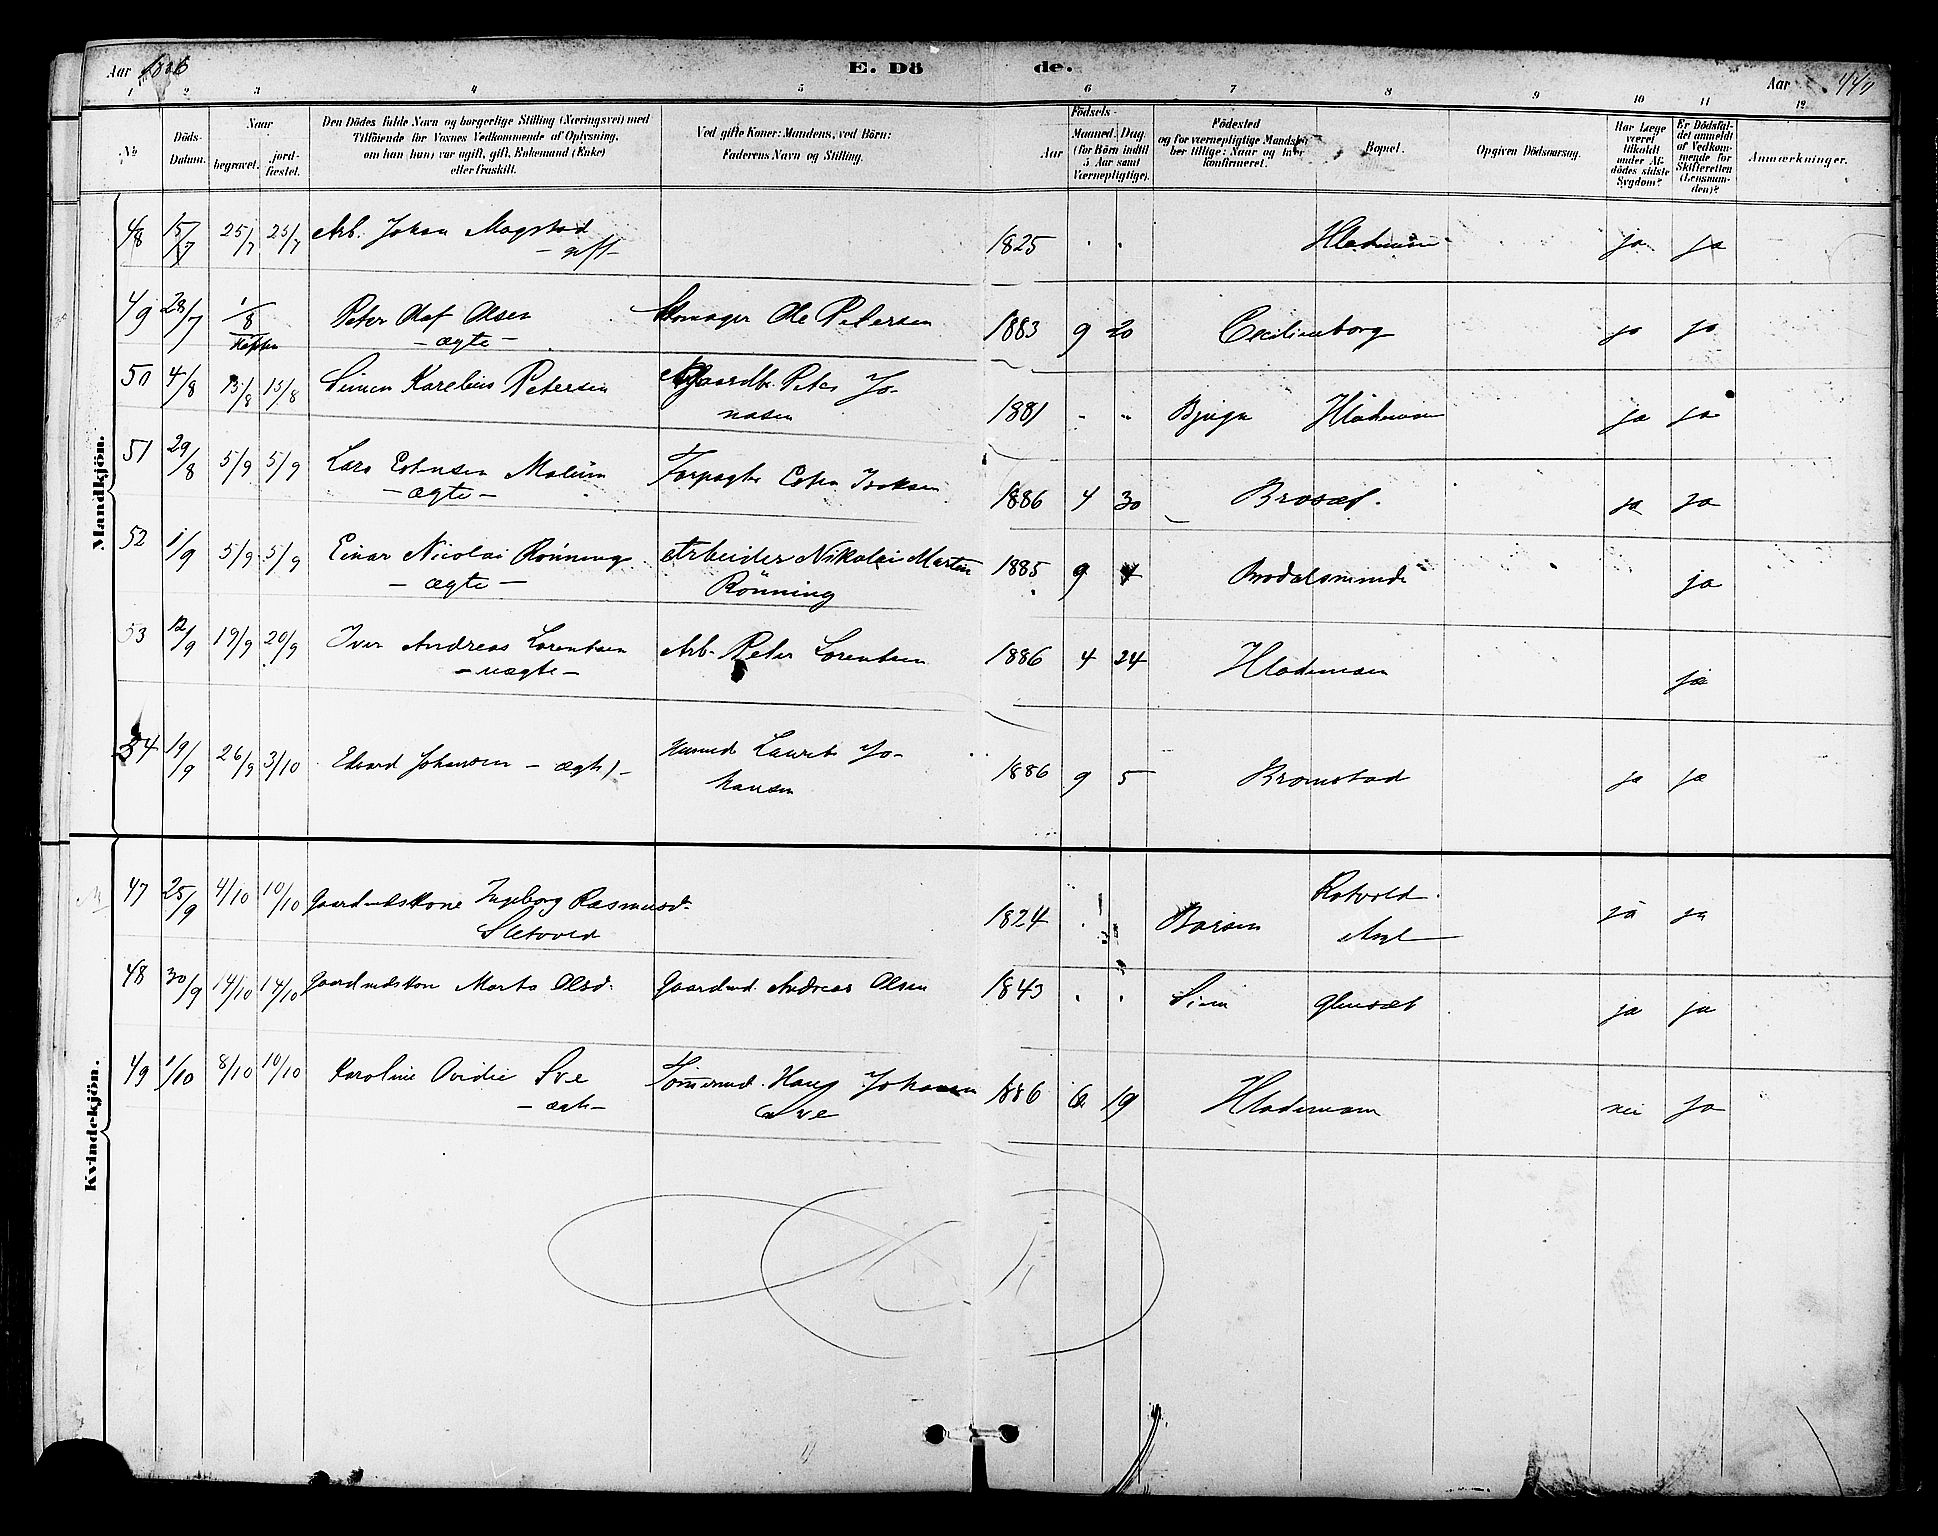 Aar 1886 E. Dö de. Aar
1 2 3 4 5 6 7 8 9 10 11 12
№
Döds-Datum.
Naar begravet. jord-fæstet.
Den Dödes fulde Navn og borgerlige Stilling (Næringsvei) med
Tilföiende for Voxnes Vedkommende af Oplysning,
om han (hun) var ugift, gift, Enkemand (Enke)
eller fraskilt.
Ved gifte Koner: Mandens, ved Börn:
Faderens Navn og Stilling.
Födsels-
Aar Maaned. Dag.
(for Börn indtil
5 Aar samt
Værnepligtige).
Födested
og for værnepligtige Mandskaber tillige: Naar og hvor
konfirmeret.
Bopæl.
Opgiven Dödsaarsag.
Har Læge
været
tilkaldt
under Afdödes sidste
Sygdom?
Er Dödsfaldet anmeldt
af Vedkommende for
Skifteretten
(Lensmanden)?
Anmærkninger.
Mandkjön.
48 15/7 25/7 25/7 Arb. Johan Magstad 1825 " " Hlademoen ja ja
- gift -
49 28/7 1/8 Peter Olaf Olsen Skomager Ole Petersen 1883 9 20 Cecilienborg ja ja
- ægte -
50 4/8 15/8 15/8 Simen Karelius Petersen Peter Jo- 1881 " " Bjugn Hlademoen ja ja
nasen
51 29/8 5/9 5/9 Lars Estensen Moleim Forpagter Esten Isaksen 1886 4 30 Brosæt. ja ja
- ægte -
52 1/9 5/9 5/9 Einar Nicolai Rönning Arbeider Nikolai Martin 1885 9 4 ja
- ægte - Rönning
53 12/9 19/9 20/9 Iver Andreas Lorentsen Arb. Peter Lorentsen 1886 4 24 Hlademoen ja
- uægte -
54 19/9 26/9 3/10 Edvard Johansen - ægte - Laurits Jo- 1886 9 5 Bromstad ja ja
hansen
Kvindekjön.
47 25/9 4/10 10/10 Gaardmdskone Ingeborg Rasmusd. 1824 " " Børsen Rotvold ja ja
Sletvold Asyl
48 30/9 14/10 14/10 Gaardmdskone Marta Olsd. Gaardmd. Andreas Olsen 1843 " " ja ja
49 1/10 8/10 10/10 Karoline Ovidie Sve Tömmermd. Johansen 1886 6 19 Hlademoen nei ja
- ægte - Sve